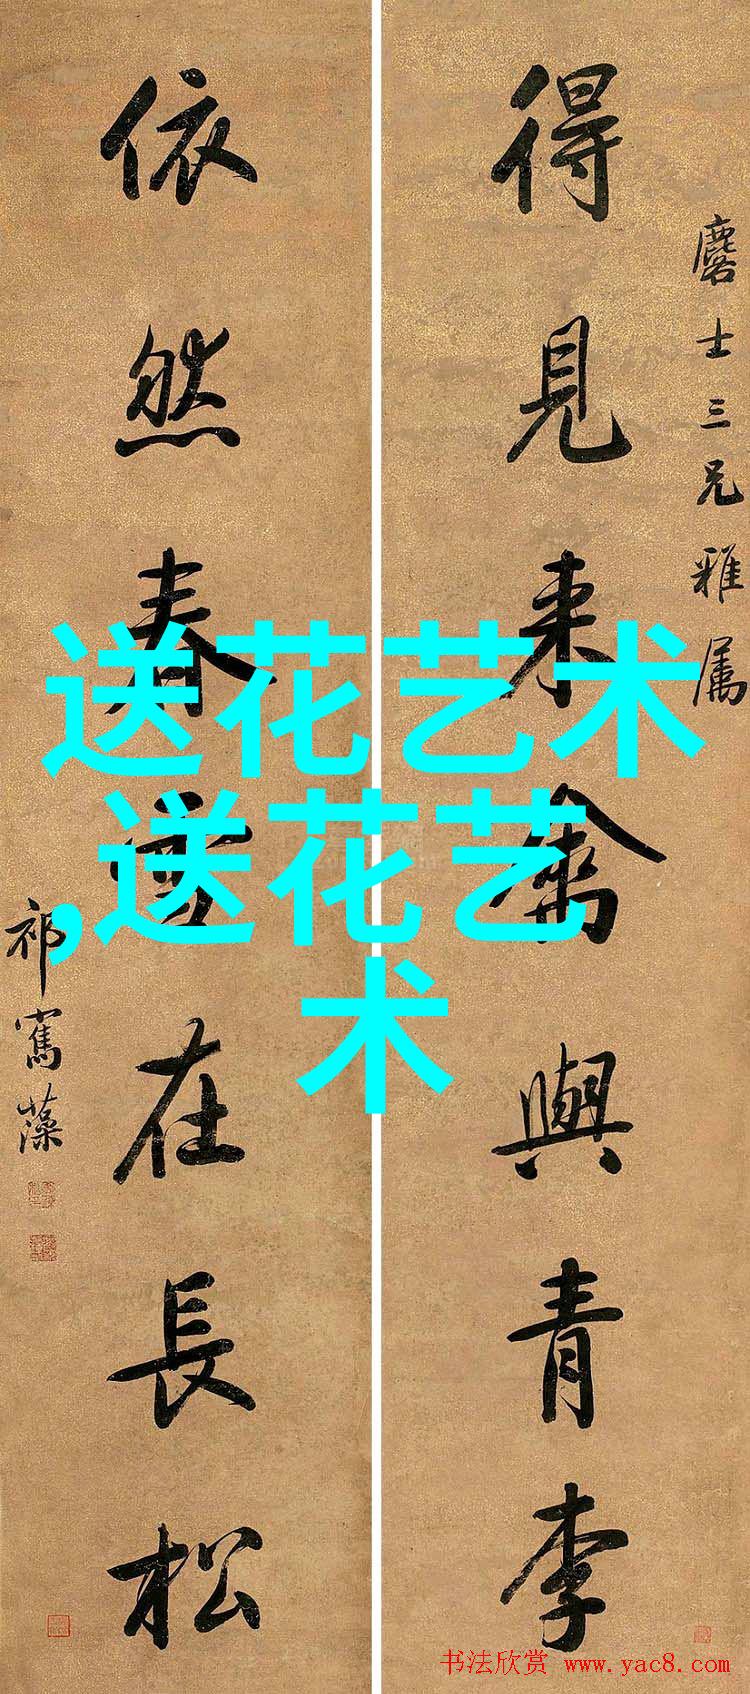 得見來禽與青李
麐士三兄雅屬
依然春雪在長松
祁寯藻
送花艺术
,送花艺
术
书法欣赏 www.yac8.com